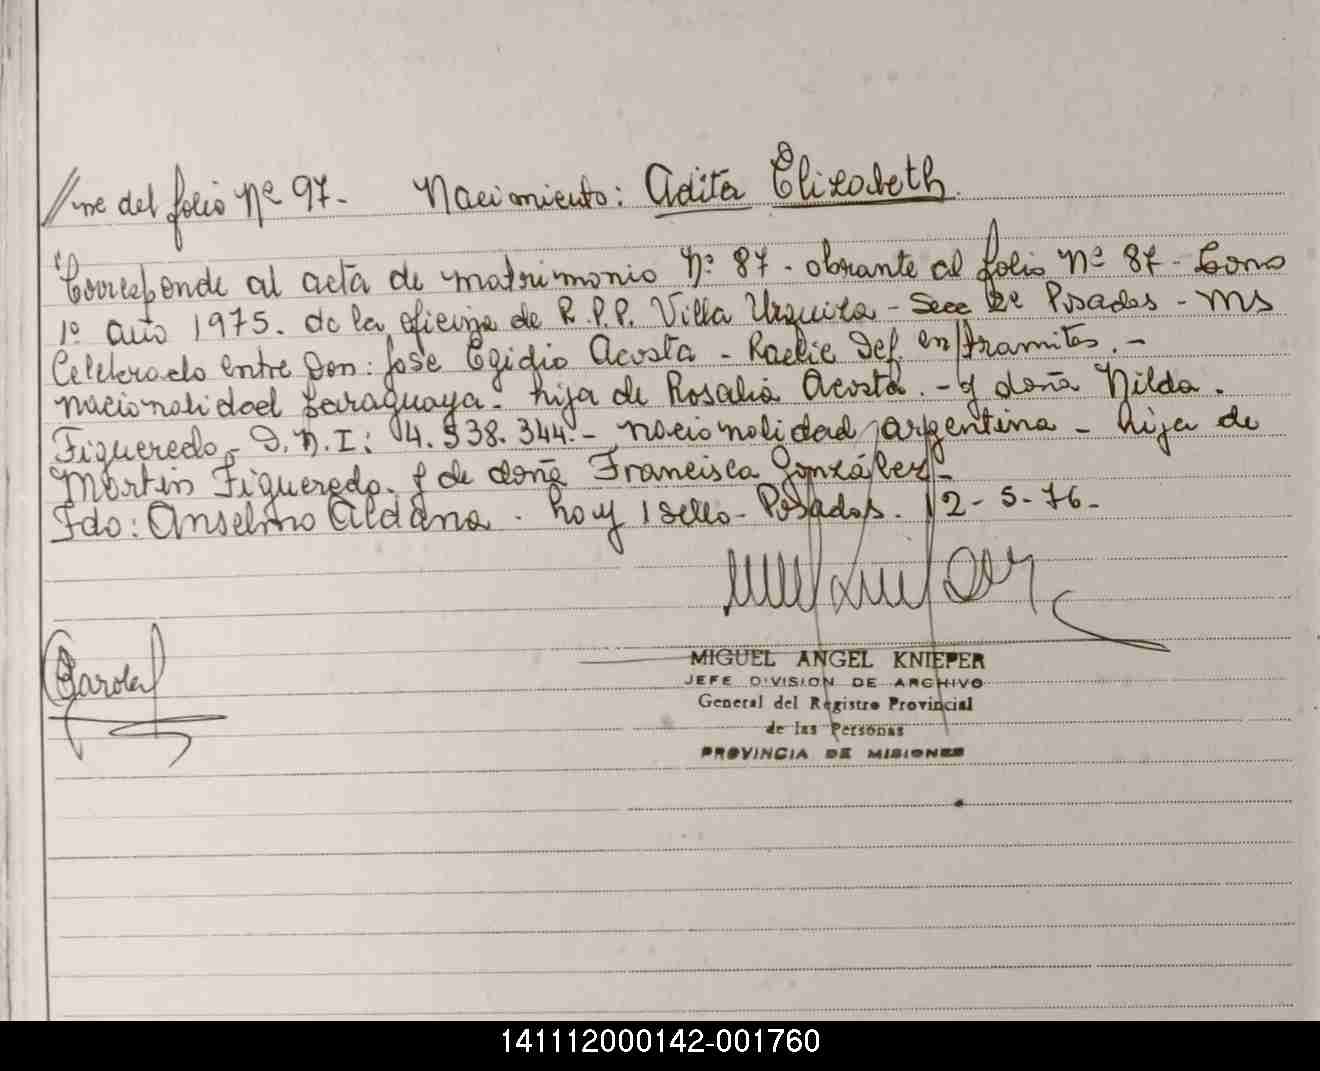 //ne del folio Nº 97- Nacimiento: Adita Elizabeth.
Corresponde al acta de matrimonio Nº 87- obrante al folio Nº 87- Tomo
1º año 1975. de la oficina de R.P.P. Villa Urquiza - Secc 2º Posadas - Ms
Celebrado entre Don: José Egidio Acosta - Radic Def. en tramites. -
nacionalidad paraguaya - hijo de Rosalia Acosta. - y doña Nilda.
Figueredo - D.N.I: 4.538.344.- nacionalidad argentina - hija de
Martin Figueredo. y de doña Francisca González -
Fdo: Anselmo Aldana. hay 1 sello - Posadas. 12-5-76-
MIGUEL ANGEL KNIEPER
JEFE DIVISION DE ARCHIVO
General del Registro Provincial
de las Personas
PROVINCIA DE MISIONES
141112000142-001760